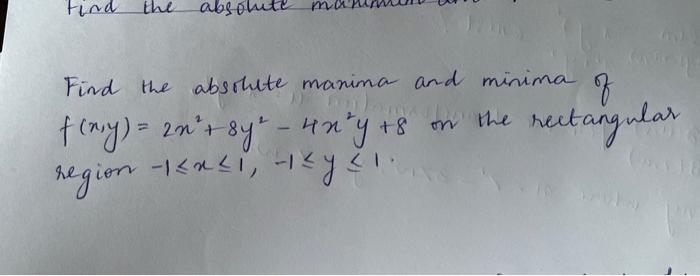 Find the absolute
Find the absolute maxima and minima of
f(x,y) = 2x² + 8y² - 4x²y + 8 on the rectangular
region -1 ≤ x ≤ 1, -1 ≤ y ≤ 1.